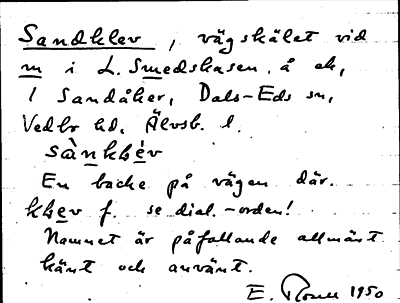 Sandklev, vägskälet vid
m i L. Smedskasen å ek,
1 Sandåker, Dals-Eds sn,
Vedbo hd. Älvsb. l.
sànkḷèv
En backe på vägen där.
kḷev f. se dial.-orden!
Namnet är påfallande allmänt
känt och använt.
E. 1950